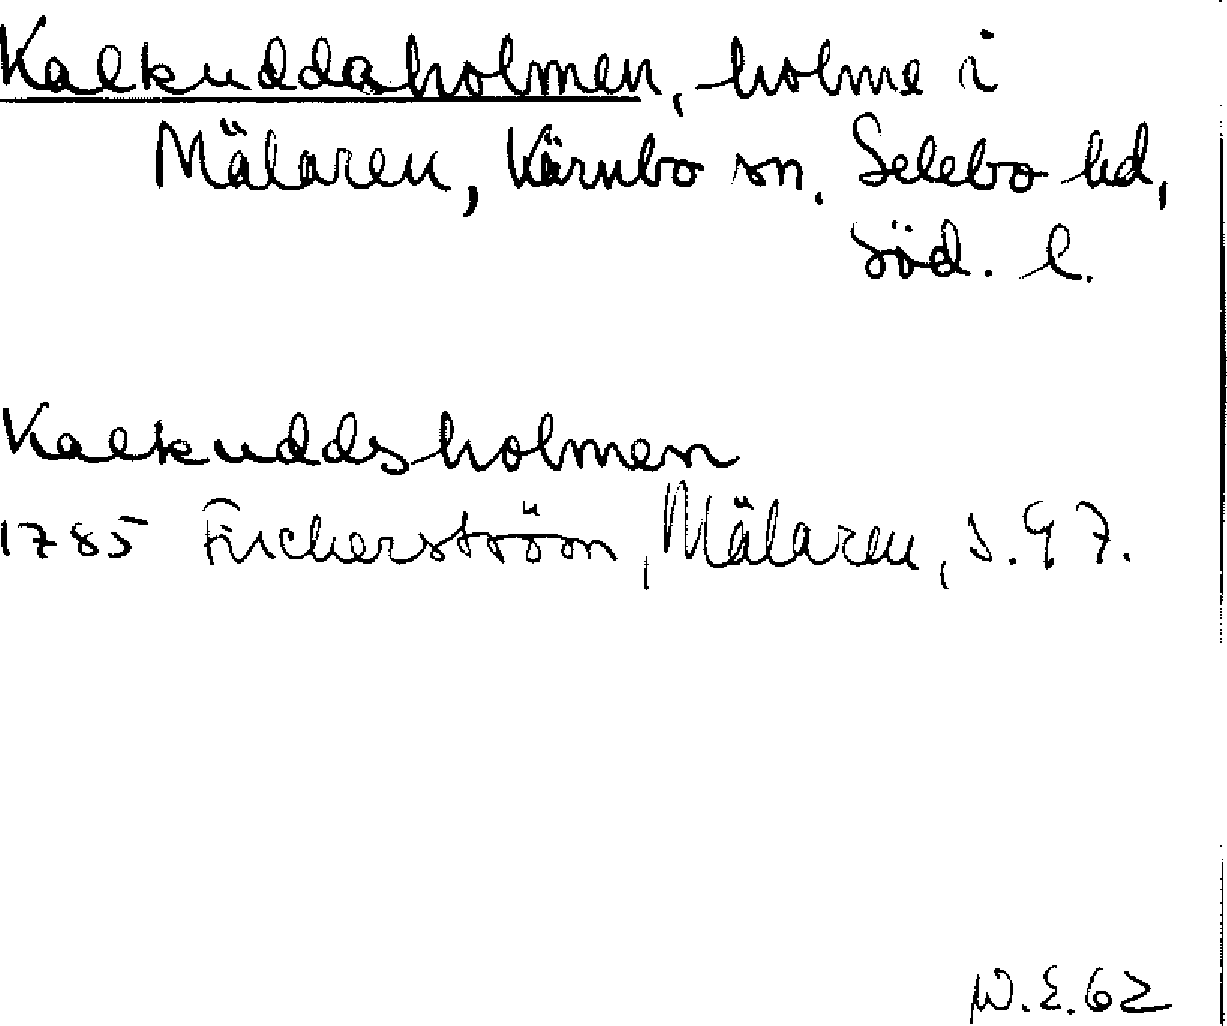 Kalkuddaholmen, holme i
Mälaren, Kärnbo sn. Selebo hd,
Söd. l.
Kalkuddsholmen
1785 Fischerström, Mälaren, s. 97.
W.E.62